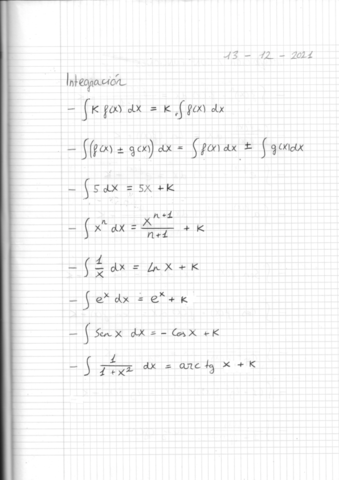 13 - 12 - 2021
Integración
- ∫ K f(x) dx = K · ∫ f(x) dx
- ∫ (f(x) ± g(x)) dx = ∫ f(x) dx ± ∫ g(x) dx
- ∫ 5 dx = 5x + K
- ∫ xⁿ dx = xⁿ⁺¹/n+1 + K
- ∫ 1/x dx = Ln x + K
- ∫ eˣ dx = eˣ + K
- ∫ Sen x dx = - Cos x + K
- ∫ 1/1 + x² dx = arc tg x + K